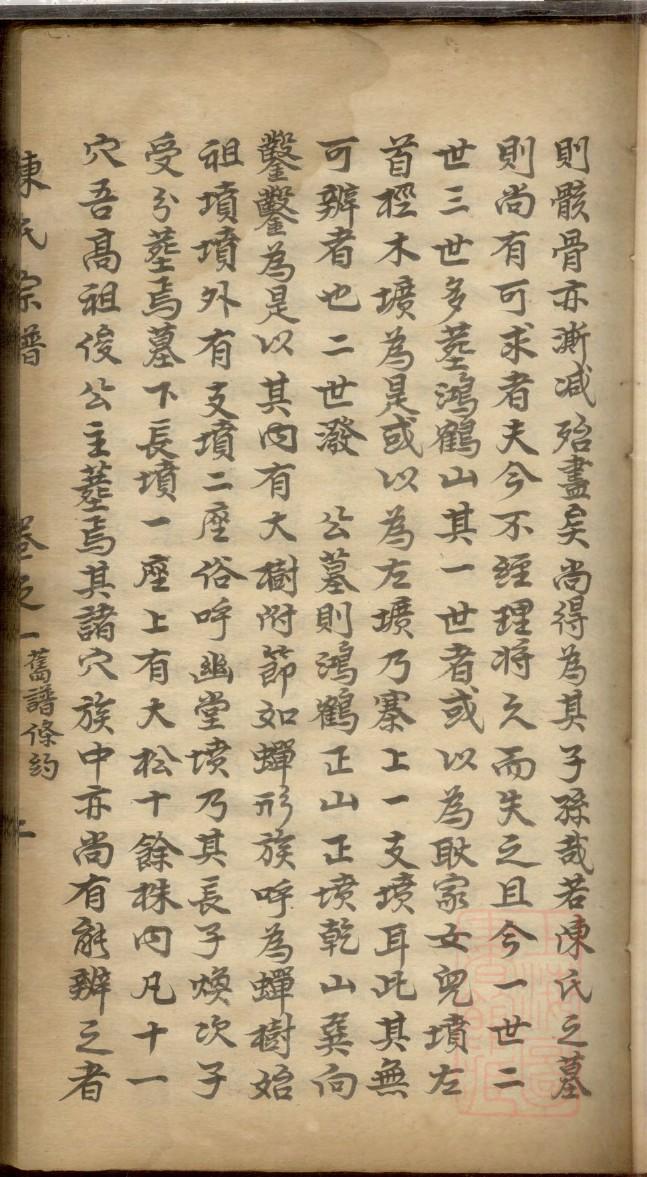 則骸骨亦漸减殆盡矣尚得為其子孫哉若陳氏之墓
則尚有可求者夫今不經理将久而失之且今一世二
世三世多塟鴻鶴山其一世者或以為耿家女兒墳左
首控木壙為是或以為左壙乃寨上一支墳耳此其無
可辨者也二世潑 公墓則鴻鶴正山正墳乾山巽向
鑿鑿為是以其內有大樹附節如蟬形族呼為蟬樹始
祖墳墳外有支墳二座俗呼幽堂墳乃其長子煥次子
受分塟焉墓下長墳一座上有大松十餘株內凡十一
穴吾髙祖俊公主塟焉其諸穴族中亦尚有能辦之者
陳氏宗譜 卷之一 舊譜條約 上